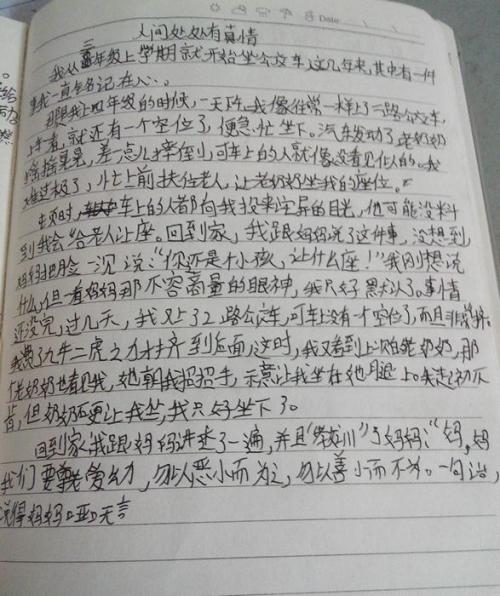 Date
人间处处有真情
我从三年级上学期就开始坐公交车,这几年来,其中有一件
事我一直铭记在心。
那是我上四年级的时候,一天下午我像往常一样上了二路公交车,
上车看,就还有一个空位了,便急忙坐下。汽车发动了,老奶奶
摇摇晃晃,差一点儿摔倒,可车上的人就像没看见似的。我
难过极了,忙上前扶住老人,让老奶奶坐我的座位。
顿时,车上的人都向我投来诧异的目光,他可能没料
到我会给老人让座。回到家,我跟妈妈说了这件事,没想到
妈妈把脸一沉说:“你还是个小孩,让什么座!”我刚想说
什么,但一看妈妈那不容商量的眼神,我只好默认了。事情
还没完,过几天,我又上了2路公交车,可车上没有一个空位了,而且非常挤。
我费了九牛二虎之力才挤到后面,这时,我又看到上次的老奶奶,那
个老奶奶也看见我,她朝我招招手,示意让我坐在她腿上。我起初不
肯,但奶奶还要让我坐,我只好坐下了。
回到家,我跟妈妈讲述了一遍,并且“教训”了妈妈:“妈,妈
我们要尊老爱幼,勿以恶小而为之,勿以善小而不为。一句话,
说得妈妈哑口无言